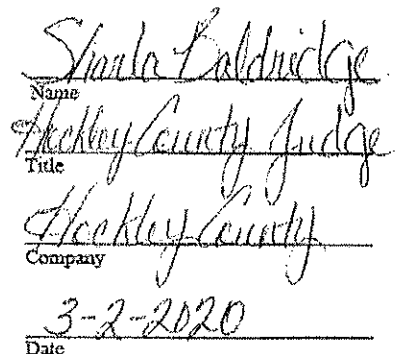 Sharla Baldridge
Name
Hockley County Judge
Title
Hockley County
Company
3-2-2020
Date